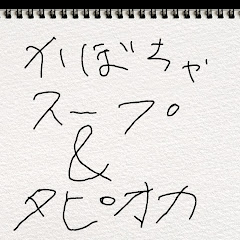 かぼちゃ
スープ
&
タピオカ